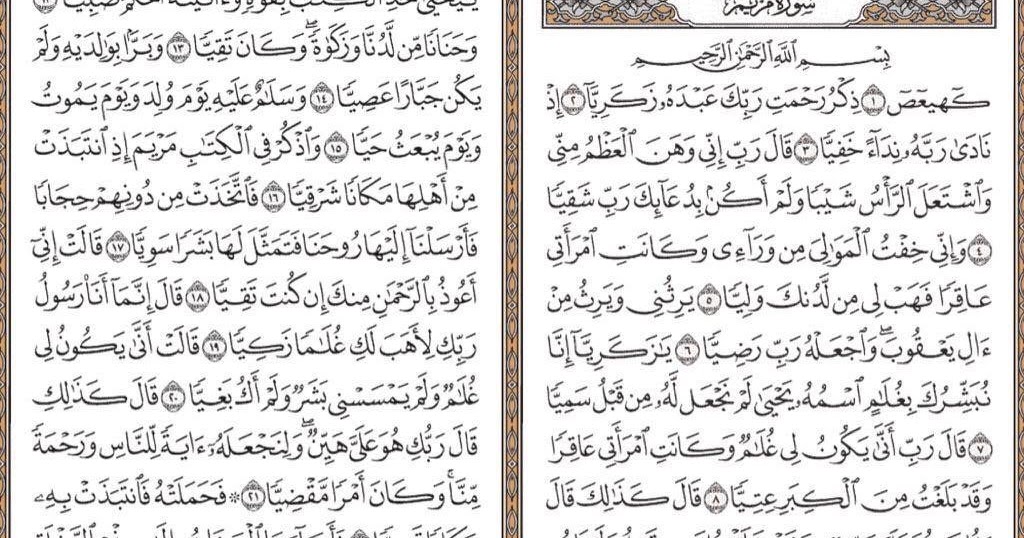 سورة مريم
بِسْمِ ٱللَّهِ ٱلرَّحْمَٰنِ ٱلرَّحِيمِ
كٓهيعٓصٓ ١ ذِكْرُ رَحْمَتِ رَبِّكَ عَبْدَهُۥ زَكَرِيَّآ ٢ إِذْ
نَادَىٰ رَبَّهُۥ نِدَآءً خَفِيًّا ٣ قَالَ رَبِّ إِنِّي وَهَنَ ٱلْعَظْمُ مِنِّي
وَٱشْتَعَلَ ٱلرَّأْسُ شَيْبًا وَلَمْ أَكُنۢ بِدُعَآئِكَ رَبِّ شَقِيًّا
٤ وَإِنِّي خِفْتُ ٱلْمَوَٰلِيَ مِن وَرَآءِي وَكَانَتِ ٱمْرَأَتِي
عَاقِرًا فَهَبْ لِي مِن لَّدُنكَ وَلِيًّا ٥ يَرِثُنِي وَيَرِثُ مِنْ
ءَالِ يَعْقُوبَۖ وَٱجْعَلْهُ رَبِّ رَضِيًّا ٦ يَٰزَكَرِيَّآ إِنَّا
نُبَشِّرُكَ بِغُلَٰمٍ ٱسْمُهُۥ يَحْيَىٰ لَمْ نَجْعَل لَّهُۥ مِن قَبْلُ سَمِيًّا
٧ قَالَ رَبِّ أَنَّىٰ يَكُونُ لِي غُلَٰمٌ وَكَانَتِ ٱمْرَأَتِي عَاقِرًا
وَقَدْ بَلَغْتُ مِنَ ٱلْكِبَرِ عِتِيًّا ٨ قَالَ كَذَٰلِكَ قَالَ
وَحَنَانًا مِّن لَّدُنَّا وَزَكَوٰةًۖ وَكَانَ تَقِيًّا ١٣ وَبَرًّۢا بِوَٰلِدَيْهِ وَلَمْ
يَكُن جَبَّارًا عَصِيًّا ١٤ وَسَلَٰمٌ عَلَيْهِ يَوْمَ وُلِدَ وَيَوْمَ يَمُوتُ
وَيَوْمَ يُبْعَثُ حَيًّا ١٥ وَٱذْكُرْ فِي ٱلْكِتَٰبِ مَرْيَمَ إِذِ ٱنتَبَذَتْ
مِنْ أَهْلِهَا مَكَانًا شَرْقِيًّا ١٦ فَٱتَّخَذَتْ مِن دُونِهِمْ حِجَابًا
فَأَرْسَلْنَآ إِلَيْهَا رُوحَنَا فَتَمَثَّلَ لَهَا بَشَرًا سَوِيًّا ١٧ قَالَتْ إِنِّيٓ
أَعُوذُ بِٱلرَّحْمَٰنِ مِنكَ إِن كُنتَ تَقِيًّا ١٨ قَالَ إِنَّمَآ أَنَا۠ رَسُولُ
رَبِّكِ لِأَهَبَ لَكِ غُلَٰمًا زَكِيًّا ١٩ قَالَتْ أَنَّىٰ يَكُونُ لِي
غُلَٰمٌ وَلَمْ يَمْسَسْنِي بَشَرٌ وَلَمْ أَكُ بَغِيًّا ٢٠ قَالَ كَذَٰلِكِ
قَالَ رَبُّكِ هُوَ عَلَيَّ هَيِّنٌۖ وَلِنَجْعَلَهُۥٓ ءَايَةً لِّلنَّاسِ وَرَحْمَةً
مِّنَّاۚ وَكَانَ أَمْرًا مَّقْضِيًّا ٢١ ۞ فَحَمَلَتْهُ فَٱنتَبَذَتْ بِهِۦ